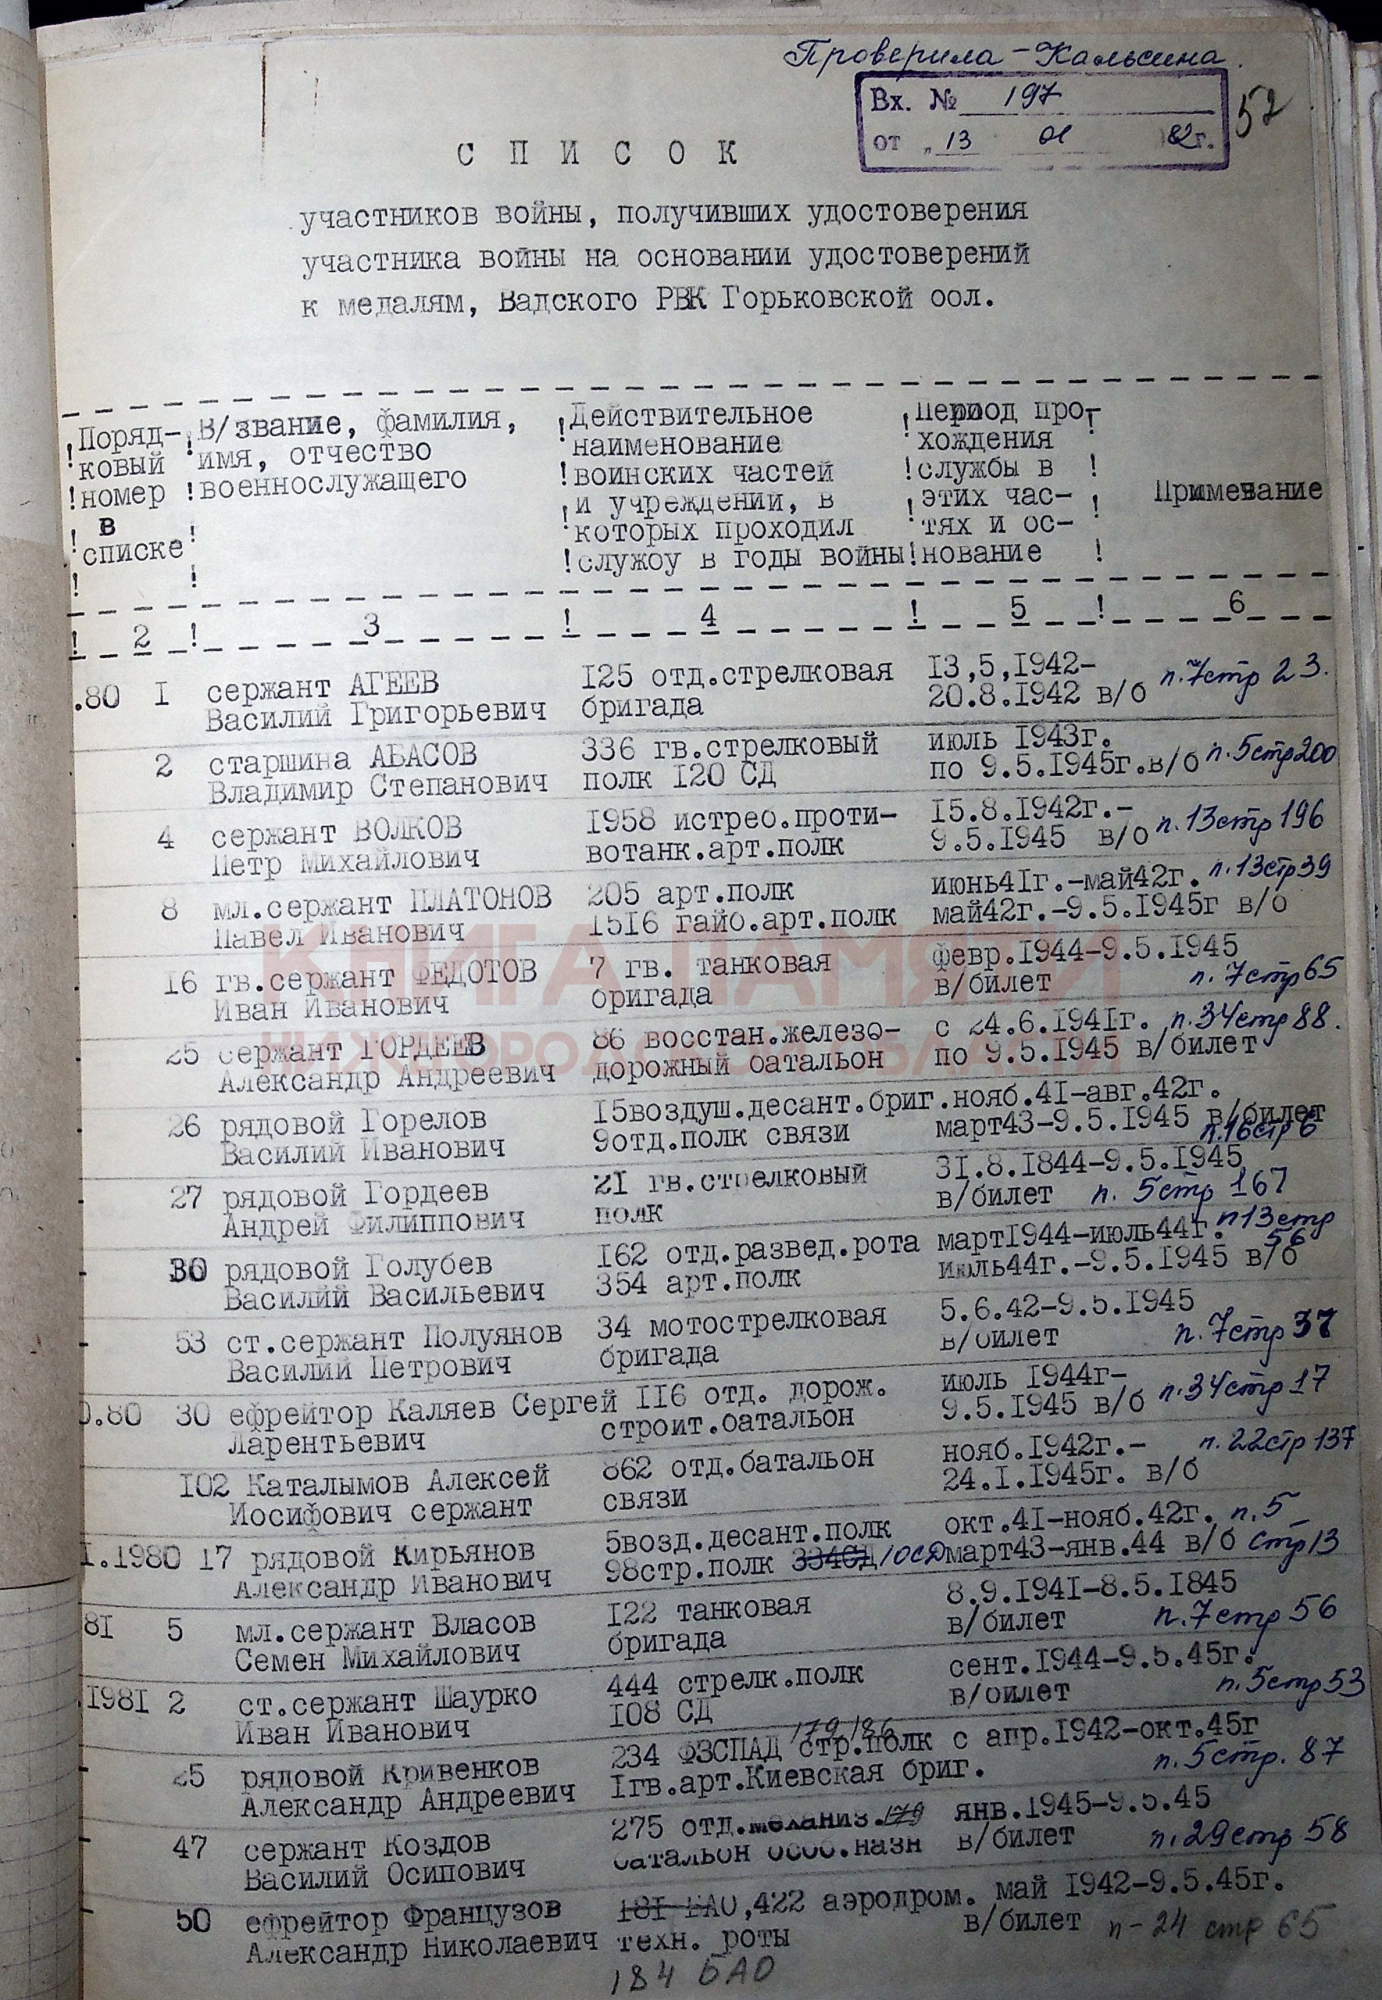 Проверила - Кальсина.
Вх. № 197
52
от „ 13 01 82г.
С П И С О К
участников войны, получивших удостоверения
участника войны на основании удостоверений
к медалям, Вадского РВК Горьковской обл.
!Поряд-!В/звание, фамилия, !Действительное !Период про-!
!ковый !имя, отчество !наименование хождения
!номер !военнослужащего !воинских частей !службы в ! Примечание
! в ! !и учреждений, в !этих час- !
!списке которых проходил тях и ос-
! ! !службу в годы войны!нование !
! 2 ! 3 ! 4 ! 5 ! 6
.80 I сержант АГЕЕВ I25 отд.стрелковая I3,5,I942- п.7стр 23.
Василий Григорьевич бригада 20.8.I942 в/б
2 старшина АБАСОВ 336 гв.стрелковый июль I943г. п.5стр200
Владимир Степанович полк I20 СД по 9.5.I945г.в/б
4 сержант ВОЛКОВ I958 истреб.проти- I5.8.I942г.- п.13стр 196
Петр Михайлович вотанк.арт.полк 9.5.I945 в/б
8 мл.сержант ПЛАТОНОВ 205 арт.полк июнь4Iг.-май42г. п.13стр39
Павел Иванович I5I6 гауб.арт.полк май42г.-9.5.I945г в/б
КНИГА ПАМЯТИ
16 гв.сержант ФЕДОТОВ 7 гв. танковая февр.I944-9.5.I945
Иван Иванович бригада в/билет п.7стр65
НИЖЕГОРОДСКОЙ ОБЛАСТИ
25 сержант ГОРДЕЕВ 86 восстан.железо- с 24.6.I94Iг. п.34стр88.
Александр Андреевич дорожный батальон по 9.5.I945 в/билет
26 рядовой Горелов I5воздуш.десант.бриг.нояб.4I-авг.42г.
Василий Иванович 9отд.полк связи март43-9.5.I945 в/билет
п.16стр 6
27 рядовой Гордеев 2I гв.стрелковый 3I.8.I844-9.5.I945
Андрей Филиппович полк в/билет п. 5стр 167
30 рядовой Голубев I62 отд.развед.рота мартI944-июль44г. п13стр 56
Василий Васильевич 354 арт.полк июль44г.-9.5.I945 в/б
53 ст.сержант Полуянов 34 мотострелковая 5.6.42-9.5.I945
Василий Петрович бригада в/билет п.7стр 37
0.80 30 ефрейтор Каляев Сергей II6 отд. дорож. июль I944г-
Ларентьевич строит.батальон 9.5.I945 в/б п.34стр17
I02 Каталымов Алексей 862 отд.батальон нояб.I942г.- п.22стр137
Иосифович сержант связи 24.I.I945г. в/б
I.I980 I7 рядовой Кирьянов 5возд.десант.полк окт.4I-нояб.42г. п.5
Александр Иванович 98стр.полк 334СД 10СД март43-янв.44 в/б стр13
8I 5 мл.сержант Власов I22 танковая 8.9.I94I-8.5.I845
Семен Михайлович бригада в/билет п.7стр 56
.I98I 2 ст.сержант Шаурко 444 стрелк.полк сент.I944-9.5.45г.
Иван Иванович I08 СД в/билет п.5стр53
179/86
25 рядовой Кривенков 234 ФЗСПАД стр.полк с апр.I942-окт.45г
Александр Андреевич Iгв.арт.Киевская бриг. п.5стр. 87
47 сержант Коздов 275 отд.механиз.179 янв.I945-9.5.45
Василий Осипович батальон особ.назн в/билет п.29стр 58
50 ефрейтор Французов I8I БАО,422 аэродром. май I942-9.5.45г.
Александр Николаевич техн. роты в/билет п-24 стр 65
184 БАО